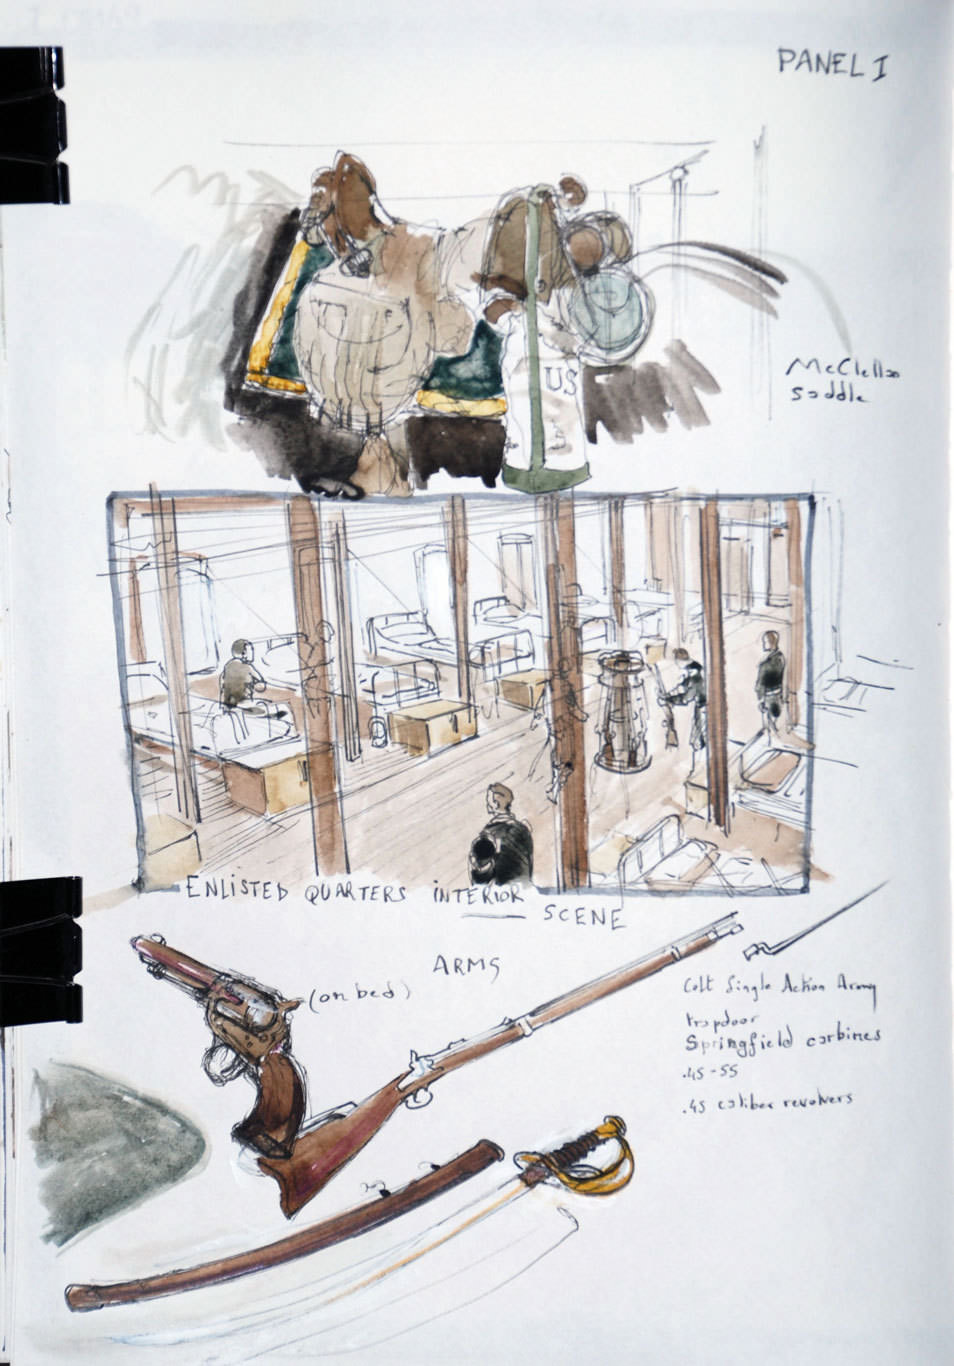 PANEL I
McClellan
saddle
US
ENLISTED QUARTERS INTERIOR SCENE
ARMS
(on bed)
Colt Single Action Army
trapdoor
Springfield carbines
.45-55
.45 caliber revolvers